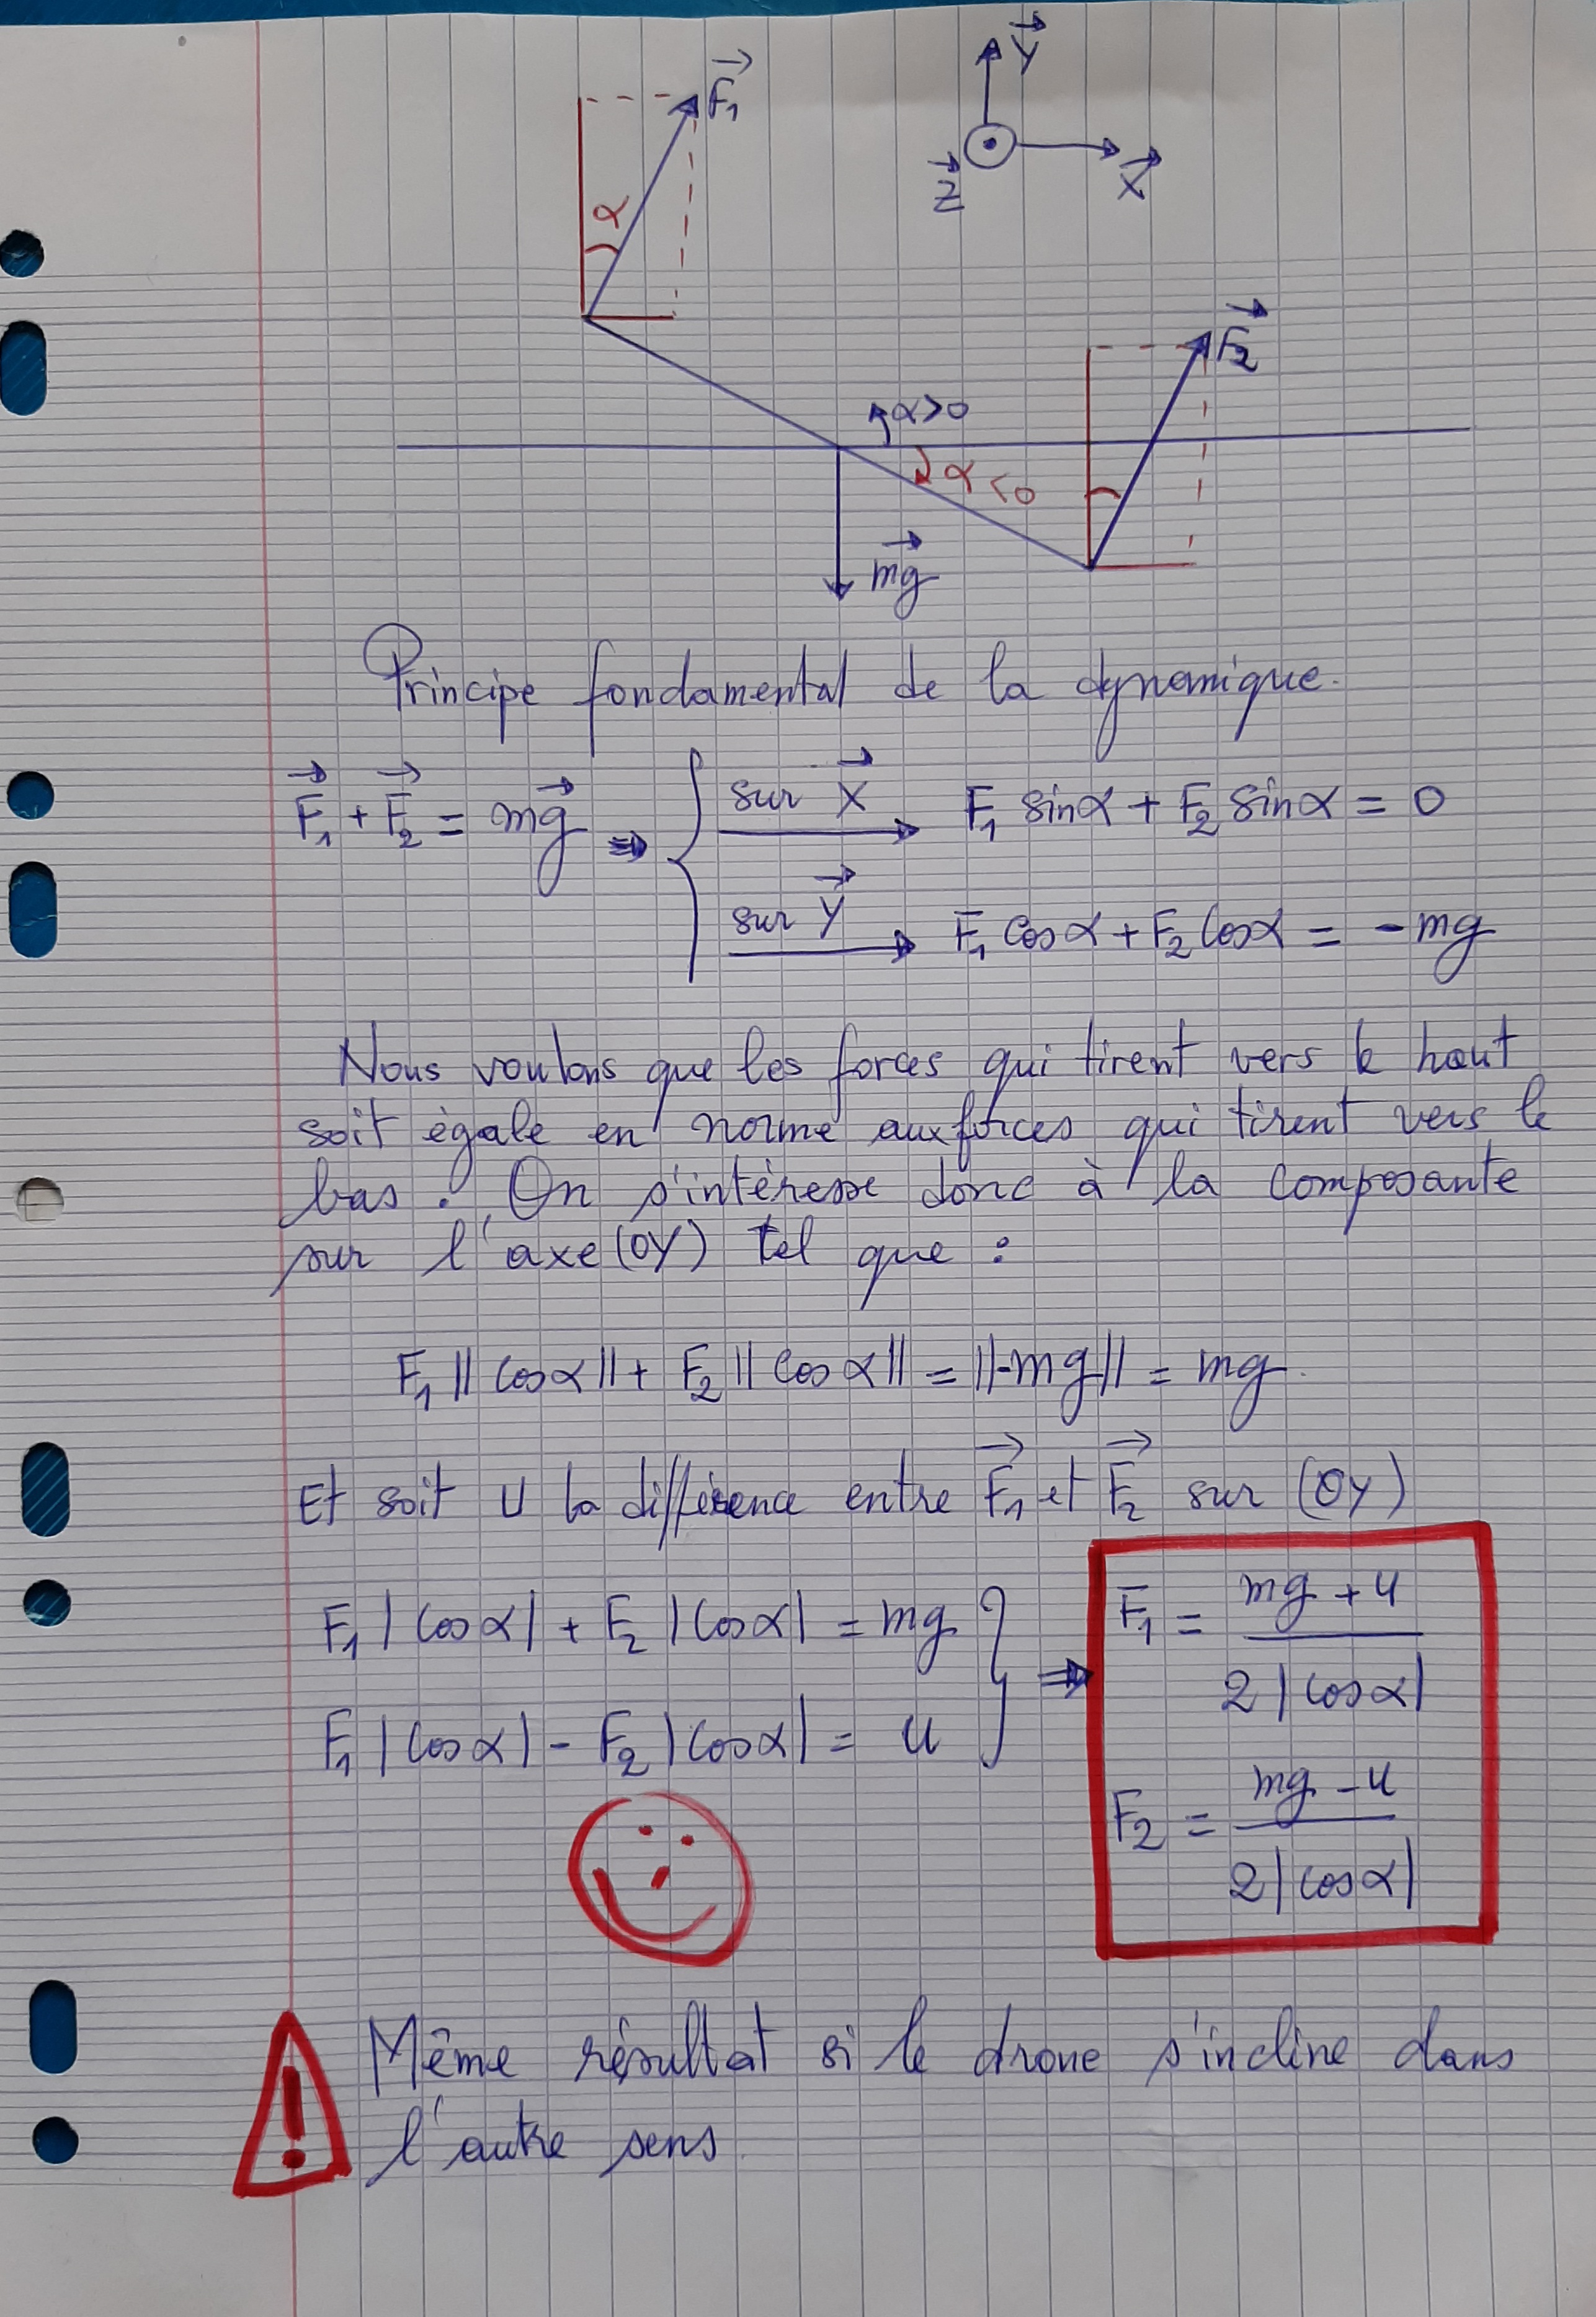 F₁→
Y→
α
Z→
X→
F₂→
α>0
α<0
mg→
Principe fondamental de la dynamique.
F₁→ + F₂→ = mg→ ⇒ { sur X→ → F₁ sinα + F₂ sinα = 0
sur Y→ → F₁ cosα + F₂ cosα = -mg
Nous voulons que les forces qui tirent vers le haut
soit égale en norme aux forces qui tirent vers le
bas. On s'intéresse donc à la composante
sur l'axe (OY) tel que :
F₁ || cosα || + F₂ || cosα || = ||-mg|| = mg.
Et soit U la différence entre F₁→ et F₂→ sur (OY)
F₁ |cosα| + F₂ |cosα| = mg
F₁ |cosα| - F₂ |cosα| = u } ⇒
F₁ = (mg + u) / 2|cosα|
F₂ = (mg - u) / 2|cosα|
! Même résultat si le drone s'incline dans
l'autre sens.